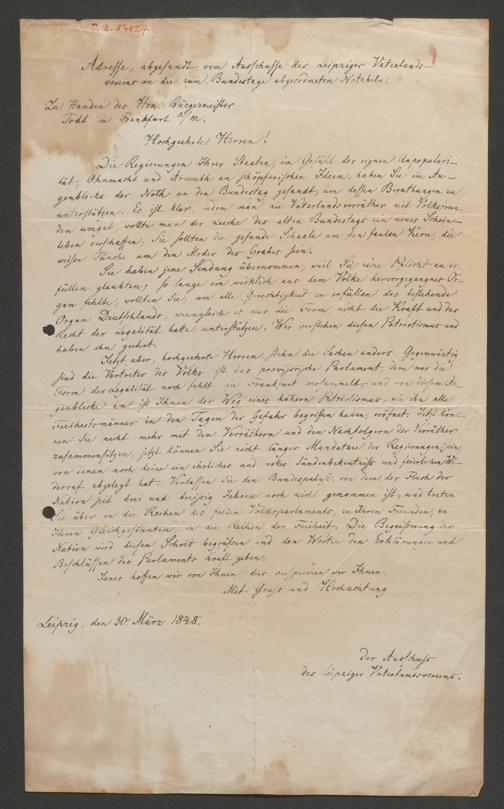 J.N. 84627
Adresse, abgesandt vom Ausschusse des Leipziger Vaterlands-
vereins an die zum Bundestage abgeordneten Notabeln.
Zu Handen des Hrn. Bürgermeister
Todt in Frankfurt a/M.
Hochgeehrte Herren!
Die Regierungen Ihrer Staaten, im Gefühl der eignen Unpopulari-
tät, Ohnmacht und Armuth an schöpferischen Ideen, haben Sie im Au-
genblicke der Noth an den Bundestag gesandt, um dessen Berathungen zu
unterstützen. Es ist klar, indem man die Vaterlandsverräther mit Volksfreun-
den umgab, wollte man der Leiche des alten Bundestags ein neues Schein-
leben verschaffen; Sie sollten die gesunde Schaale um den faulen Kern, die
weiße Tünche um den Moder des Grabes sein.
Sie haben jene Sendung übernommen, weil Sie eine Pflicht zu er-
füllen glaubten; so lange ein wirklich aus dem Volke hervorgegangnes Or-
gan fehlte, wollten Sie, um alle Gerechtigkeit zu erfüllen, das bestehende
Organ Deutschlands, wenngleich es nur die Form nicht die Kraft und das
Recht der Legalität hatte unterstützen. Wir verstehen diesen Patriotismus und
haben ihn geehrt.
Jetzt aber, hochgeehrte Herren, stehn die Sachen anders. Gegenwärtig
sind die Vertreter des Volks, ist das provisorische Parlament, dem nur die
Form der Legalität noch fehlt in Frankfurt versammelt, und von diesem Au-
genblicke an ist Ihnen der Weg eines höhern Patriotismus, wie ihn alle
Freiheitsmänner in den Tagen der Gefahr begriffen haben, eröffnet. Jetzt kön-
nen Sie nicht mehr mit den Verräthern und den Nachfolgern der Verräther
zusammensitzen, jetzt können Sie nicht länger Mandatare der Regierungen sein,
von denen noch keine ein ehrliches und volles Sündenbekenntniß und feierlichen Wi-
derruf abgelegt hat. Verlassen Sie den Bundespalast, von dem der Fluch der
Nation seit drei und dreißig Jahren noch nicht genommen ist, und treten
Sie über in die Reihen des freien Volksparlaments, zu Ihren Freunden, zu
Ihren Gleichgesinnten, in die Reihen der Freiheit. Die Begeisterung der
Nation wird diesen Schritt begrüßen und den Worten den Erklärungen und
Beschlüssen des Parlaments Kraft geben.
Jenes hoffen wir von Ihnen, dies versprechen wir Ihnen.
Mit Gruß und Hochachtung
Leipzig, den 30. März 1848.
Der Ausschuß
des Leipziger Vaterlandsvereins.